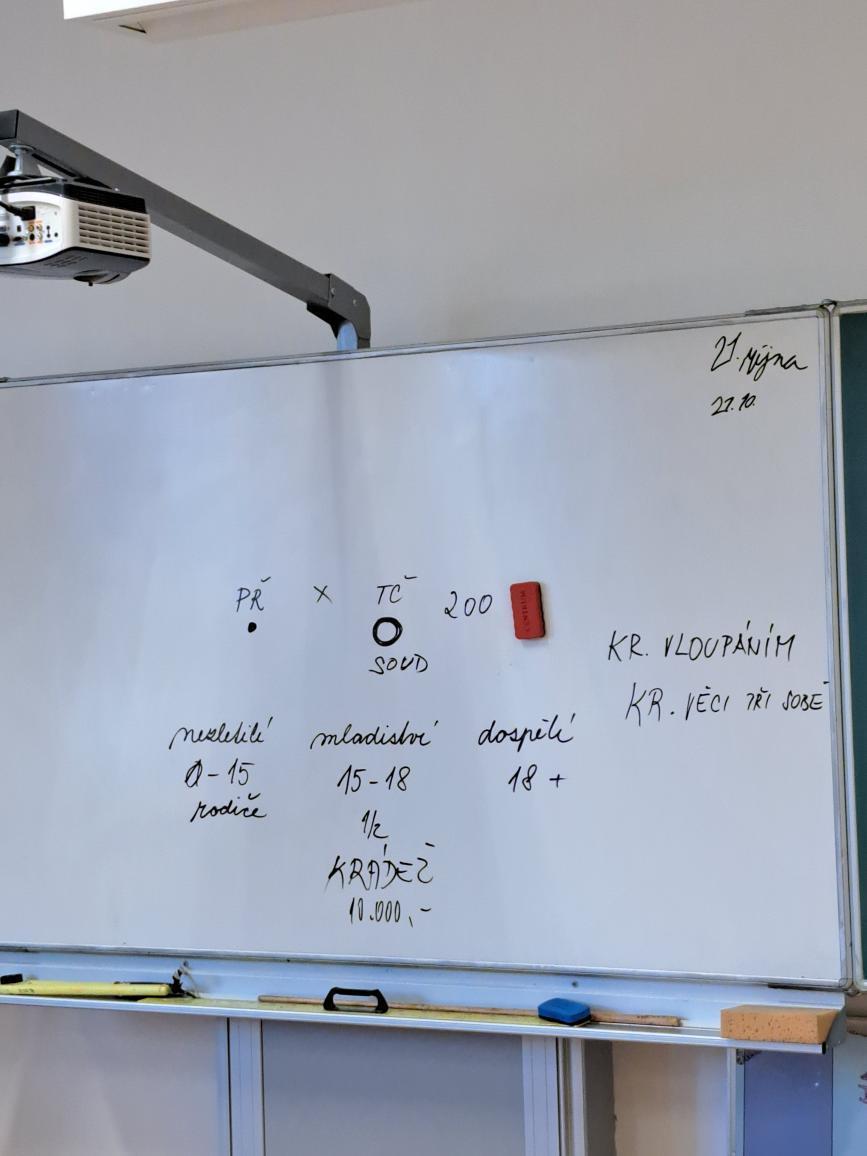 21. října
21.10.
PŘ × TČ 200
CENTRUM
SOUD
KR. VLOUPÁNÍM
KR. VĚCI PŘI SOBĚ
nezletilí mladiství dospělí
0-15 15-18 18+
rodiče
1/2
KRÁDEŽ
10.000,-